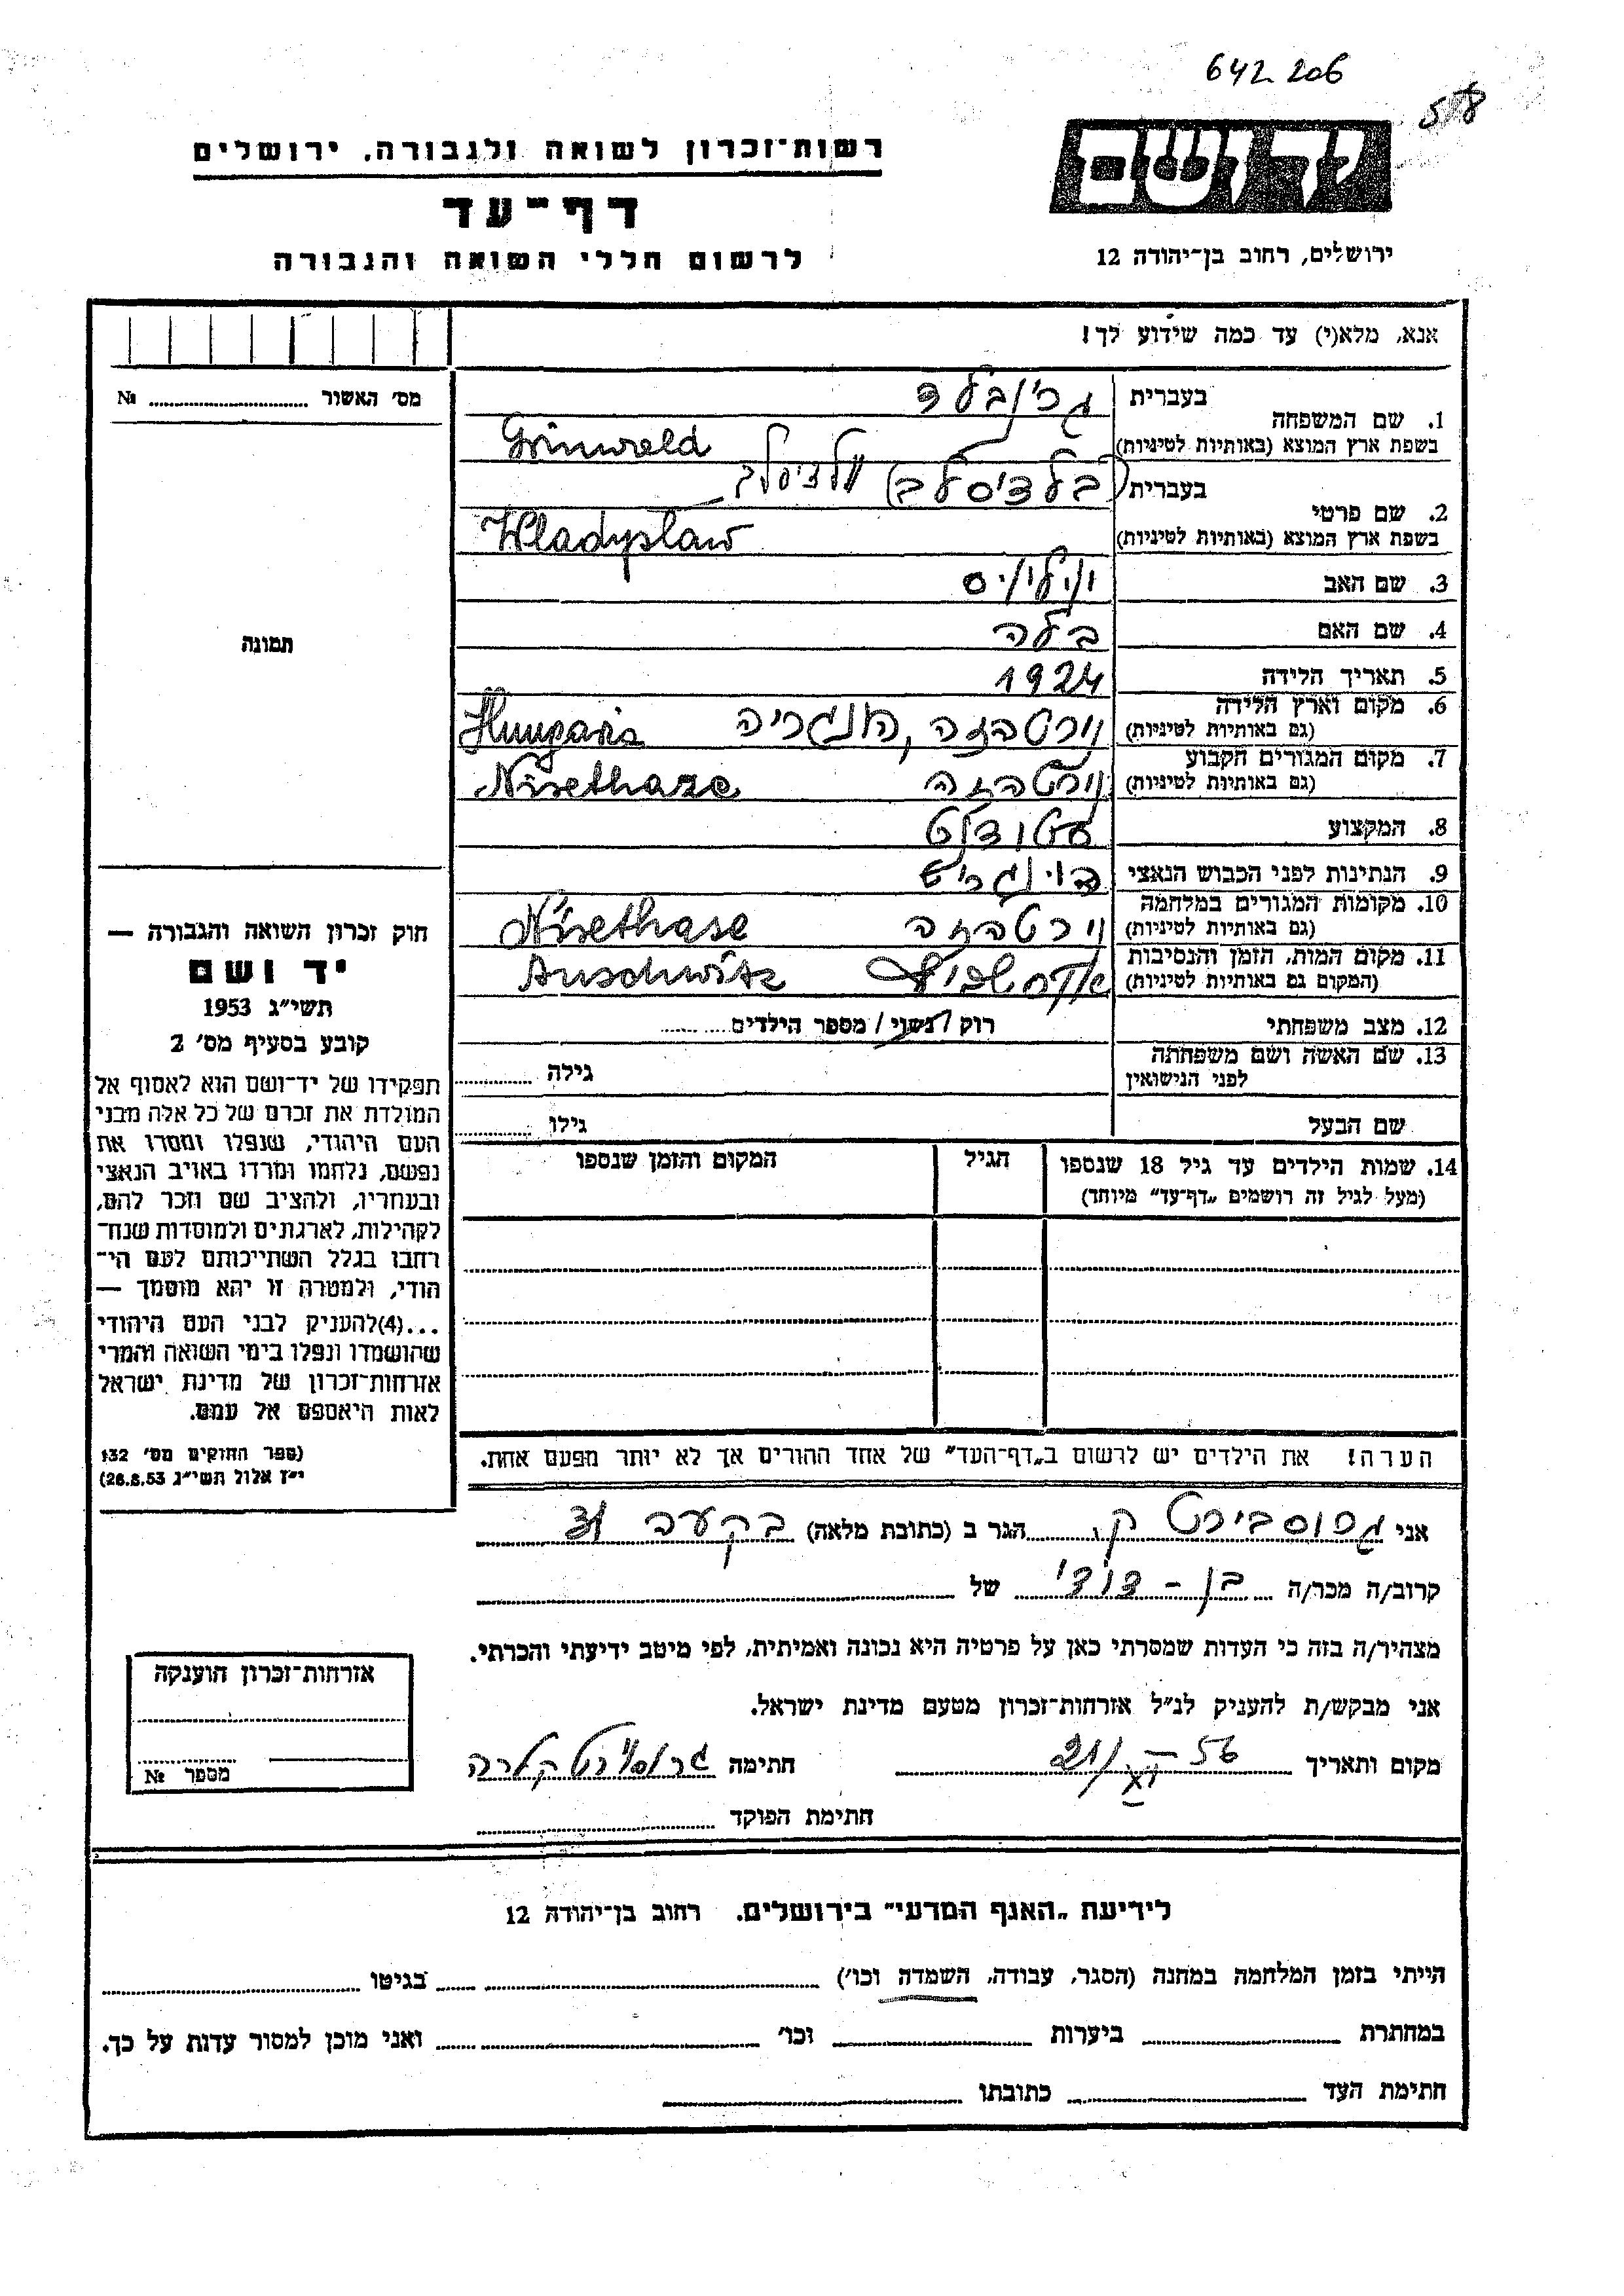 642206
578
יד ושם
רשות־זכרון לשואה ולגבורה, ירושלים
דף־עד
לרשום חללי השואה והגבורה
ירושלים, רחוב בן־יהודה 12
אנא, מלא(י) עד כמה שידוע לך!
מס׳ האשור № 
תמונה
1. שם המשפחה
בעברית גרינבלד
בשפת ארץ המוצא (באותיות לטיניות) Grinweld
2. שם פרטי
בעברית (בלדיסלב) ולדיסלב
בשפת ארץ המוצא (באותיות לטיניות) Wladyslaw
3. שם האב
4. שם האם בלה
5. תאריך הלידה 1924
6. מקום וארץ הלידה נירטהזה, הונגריה
(גם באותיות לטיניות) Hungaria
7. מקום המגורים הקבוע נירטהזה
(גם באותיות לטיניות) Nirethaze
8. המקצוע סטודנט
9. הנתינות לפני הכבוש הנאצי
10. מקומות המגורים במלחמה נירטהזה
(גם באותיות לטיניות) Nirethase
11. מקום המות, הזמן והנסיבות
(המקום גם באותיות לטיניות) Auschwitz
12. מצב משפחתי רווק / נשוי / מספר הילדים
13. שם האשה ושם משפחתה
לפני הנישואין גילה
שם הבעל גילו
14. שמות הילדים עד גיל 18 שנספו הגיל המקום והזמן שנספו
(מעל לגיל זה רושמים „דף־עד״ מיוחד)
חוק זכרון השואה והגבורה —
יד ושם
תשי״ג 1953
קובע בסעיף מס׳ 2
תפקידו של יד־ושם הוא לאסוף אל
המולדת את זכרם של כל אלה מבני
העם היהודי, שנפלו ומסרו את
נפשם, נלחמו ומרדו באויב הנאצי
ובעוזריו, ולהציב שם וזכר להם,
לקהילות, לארגונים ולמוסדות שנח־
רבו בגלל השתייכותם לעם הי־
הודי, ולמטרה זו יהא מוסמך —
...(4)להעניק לבני העם היהודי
שהושמדו ונפלו בימי השואה והמרי
אזרחות־זכרון של מדינת ישראל
לאות היאספם אל עמם.
(ספר החוקים מס׳ 132
י״ז אלול תשי״ג 28.8.53)
הערה! את הילדים יש לרשום ב„דף־העד״ של אחד ההורים אך לא יותר מפעם אחת.
אני ק. הגר ב (כתובת מלאה) בקעה
קרוב/ה מכר/ה בן - דודי של
מצהיר/ה בזה כי העדות שמסרתי כאן על פרטיה היא נכונה ואמיתית, לפי מיטב ידיעתי והכרתי.
אני מבקש/ת להעניק לנ״ל אזרחות־זכרון מטעם מדינת ישראל.
מקום ותאריך 21/XI - 56 חתימה קלרה
חתימת הפוקד
אזרחות־זכרון הוענקה
מספר №
לידיעת „האגף המדעי״ בירושלים, רחוב בן־יהודה 12
הייתי בזמן המלחמה במחנה (הסגר, עבודה, השמדה וכו׳) בגיטו
במחתרת ביערות וכו׳ ואני מוכן למסור עדות על כך.
חתימת העד כתובתו